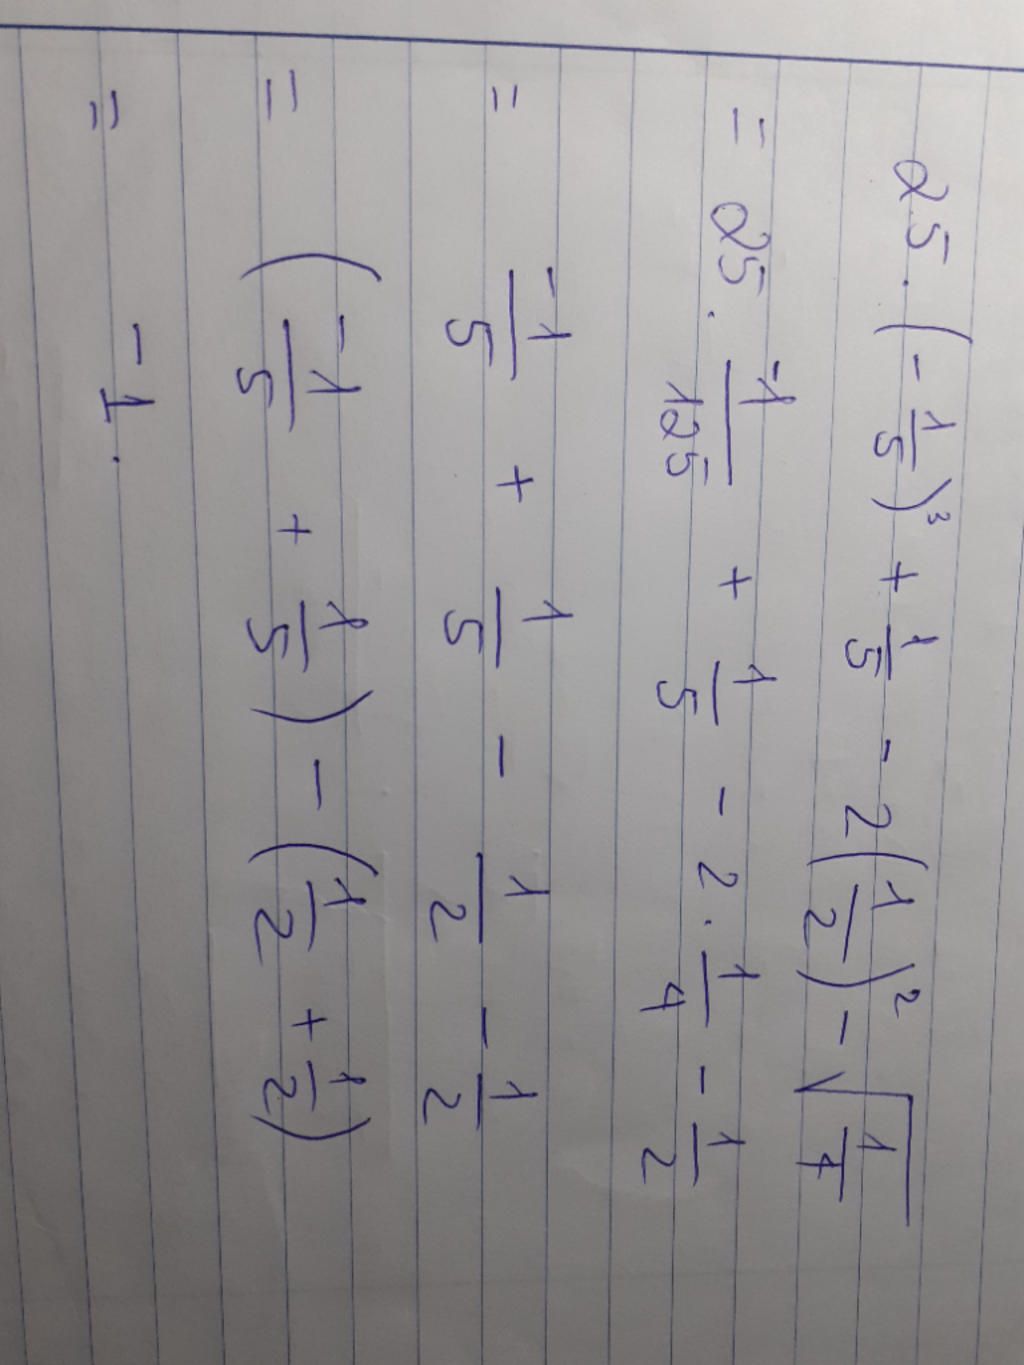 25 . (- 1/5)³ + 1/5 - 2(1/2)² - √(1/4)
= 25 . -1/125 + 1/5 - 2 . 1/4 - 1/2
= -1/5 + 1/5 - 1/2 - 1/2
= (-1/5 + 1/5) - (1/2 + 1/2)
= -1.